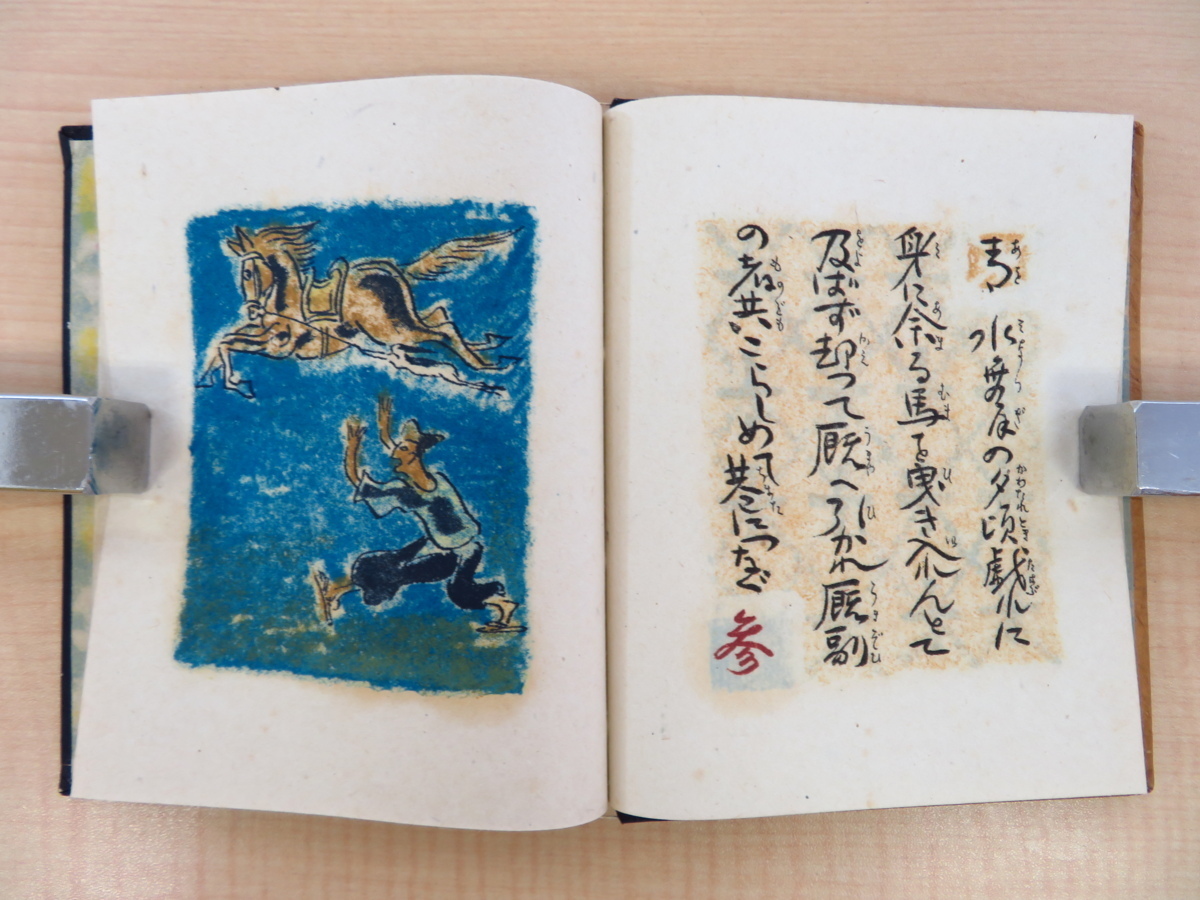 青 水無月の夕頃戯れに
身に余る馬を曳き入れんとて
及ばず却つて厩へ引かれ厩副
の者共こらしめて巷につなぐ
参